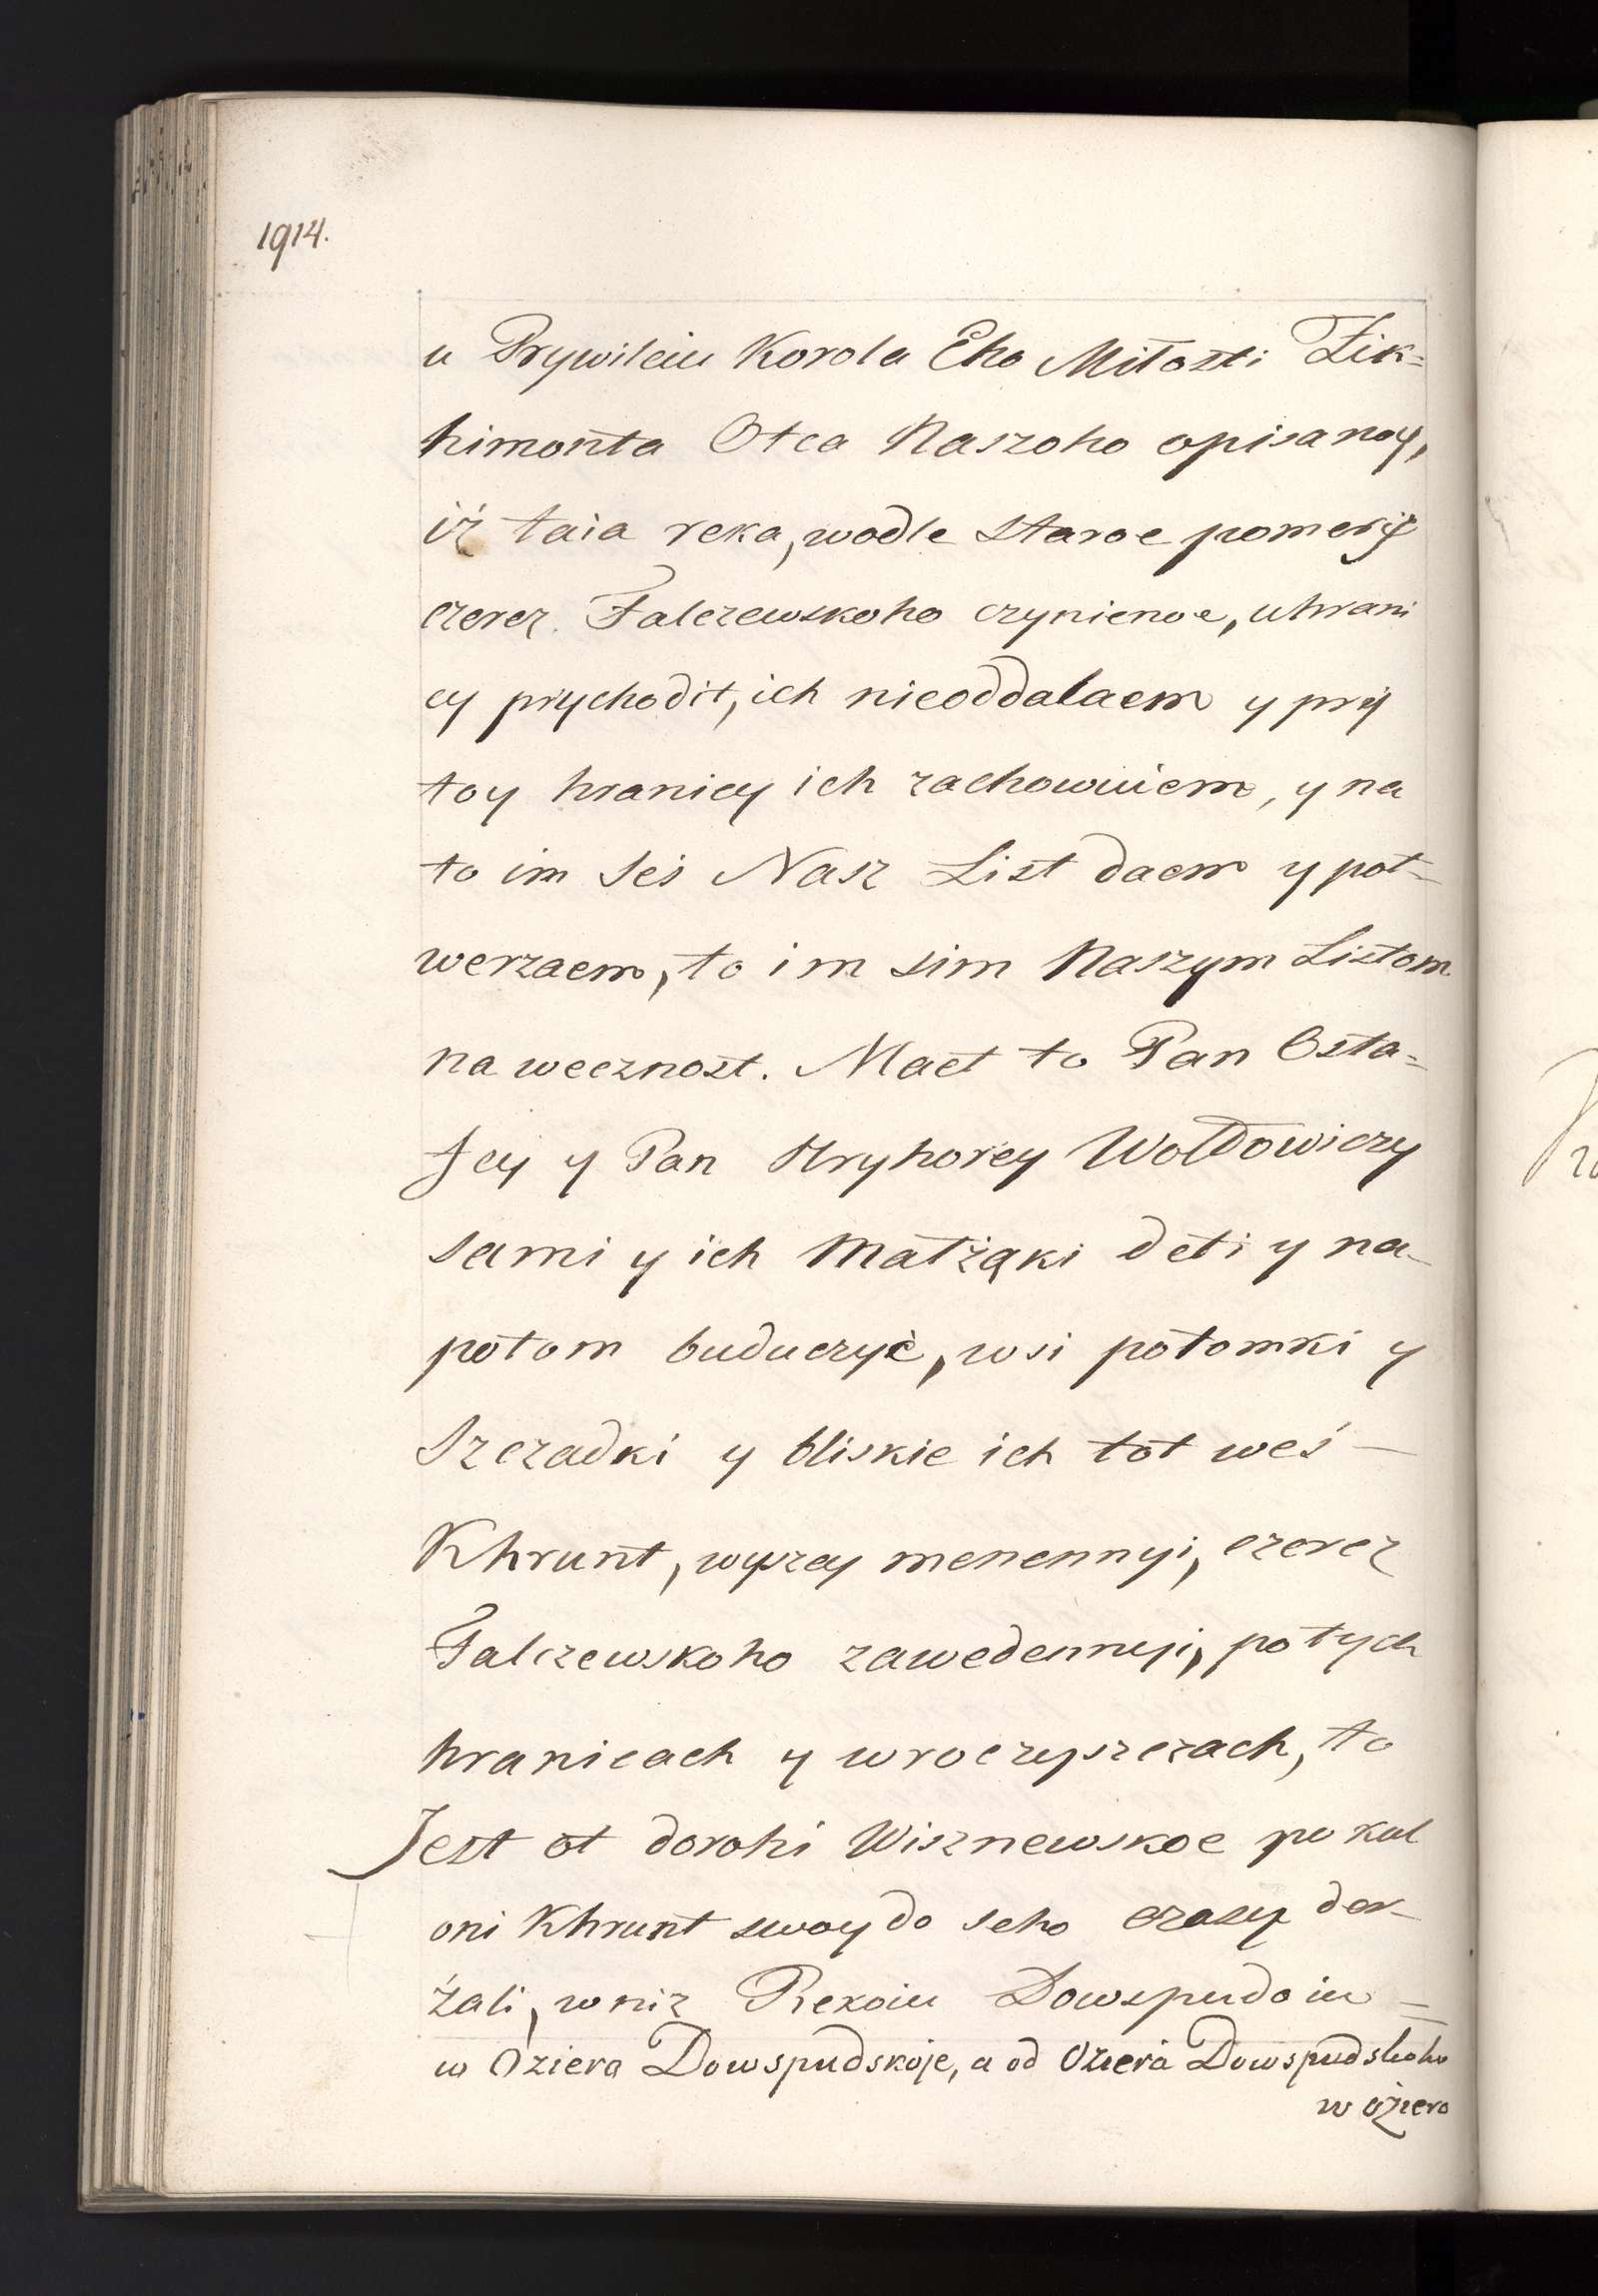 1914.
u Prywileiu Korola Eho Miłosti Żik=
himonta Otca Naszoho opisanoy,
iż taia reka, wodle staroe pomery
czerez Falczewskoho czynienoe, uhrani
cy prychodit, ich nieoddalaem y pry
toy hranicy ich zachowuiem, y na
to im seś Nasz List daem y pot-
werzaem, to im sim Naszym Listom
na wecznost. Maet to Pan Osta=
fey y Pan Hryhorey Wołłowiczy
sami y ich Małżąki deti y na-
potom buduczyè, wsi potomki y
szczadki y bliskie ich tot weś —
Khrunt, wyzey menennyi, czerez
Falczewskoho zawedennyi, po tych
hranicach y wroczyszczach, to
Jest ot dorohi Wisznewskoe pokul
oni Khrunt swoy do seho czasu der-
żali, wniz Rekoiu Dowspudoiu =
w Oziera Dowspudskoje, a od Oziera Dowspudskoho
w oziero